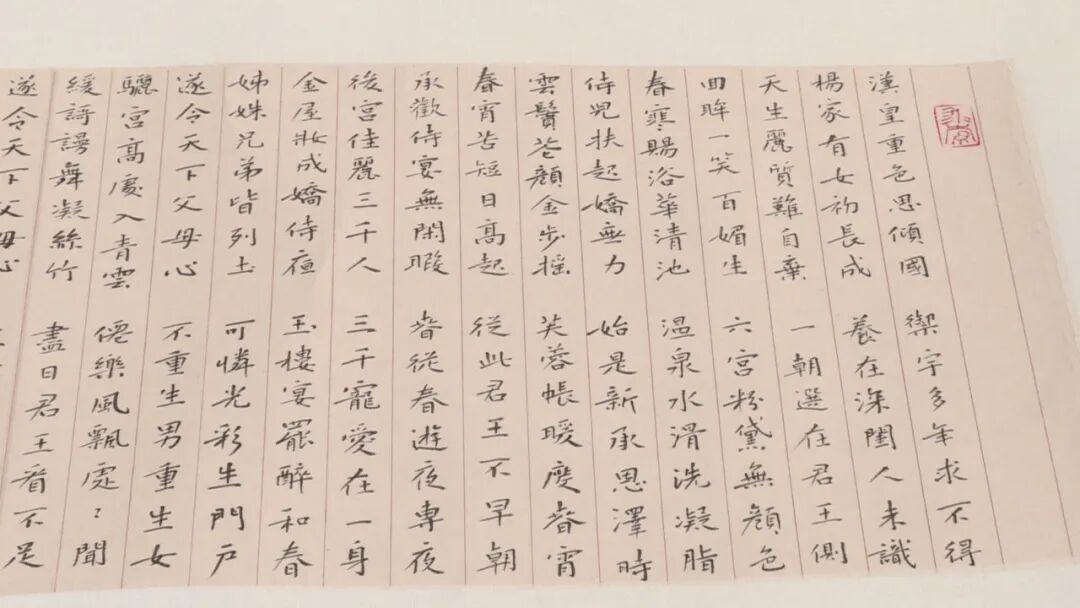 漢皇重色思傾國 禦宇多年求不得
楊家有女初長成 養在深閨人未識
天生麗質難自棄 一朝選在君王側
回眸一笑百媚生 六宮粉黛無顏色
春寒賜浴華清池 溫泉水滑洗凝脂
侍兒扶起嬌無力 始是新承恩澤時
雲鬢花顏金步搖 芙蓉帳暖度春宵
春宵苦短日高起 從此君王不早朝
承歡侍宴無閑暇 春從春遊夜專夜
後宮佳麗三千人 三千寵愛在一身
金屋妝成嬌侍夜 玉樓宴罷醉和春
姊妹兄弟皆列土 可憐光彩生門戶
遂令天下父母心 不重生男重生女
驪宮高處入青雲 僊樂風飄處〻聞
緩謌謾舞凝絲竹 盡日君王看不足
遂令天下父母心